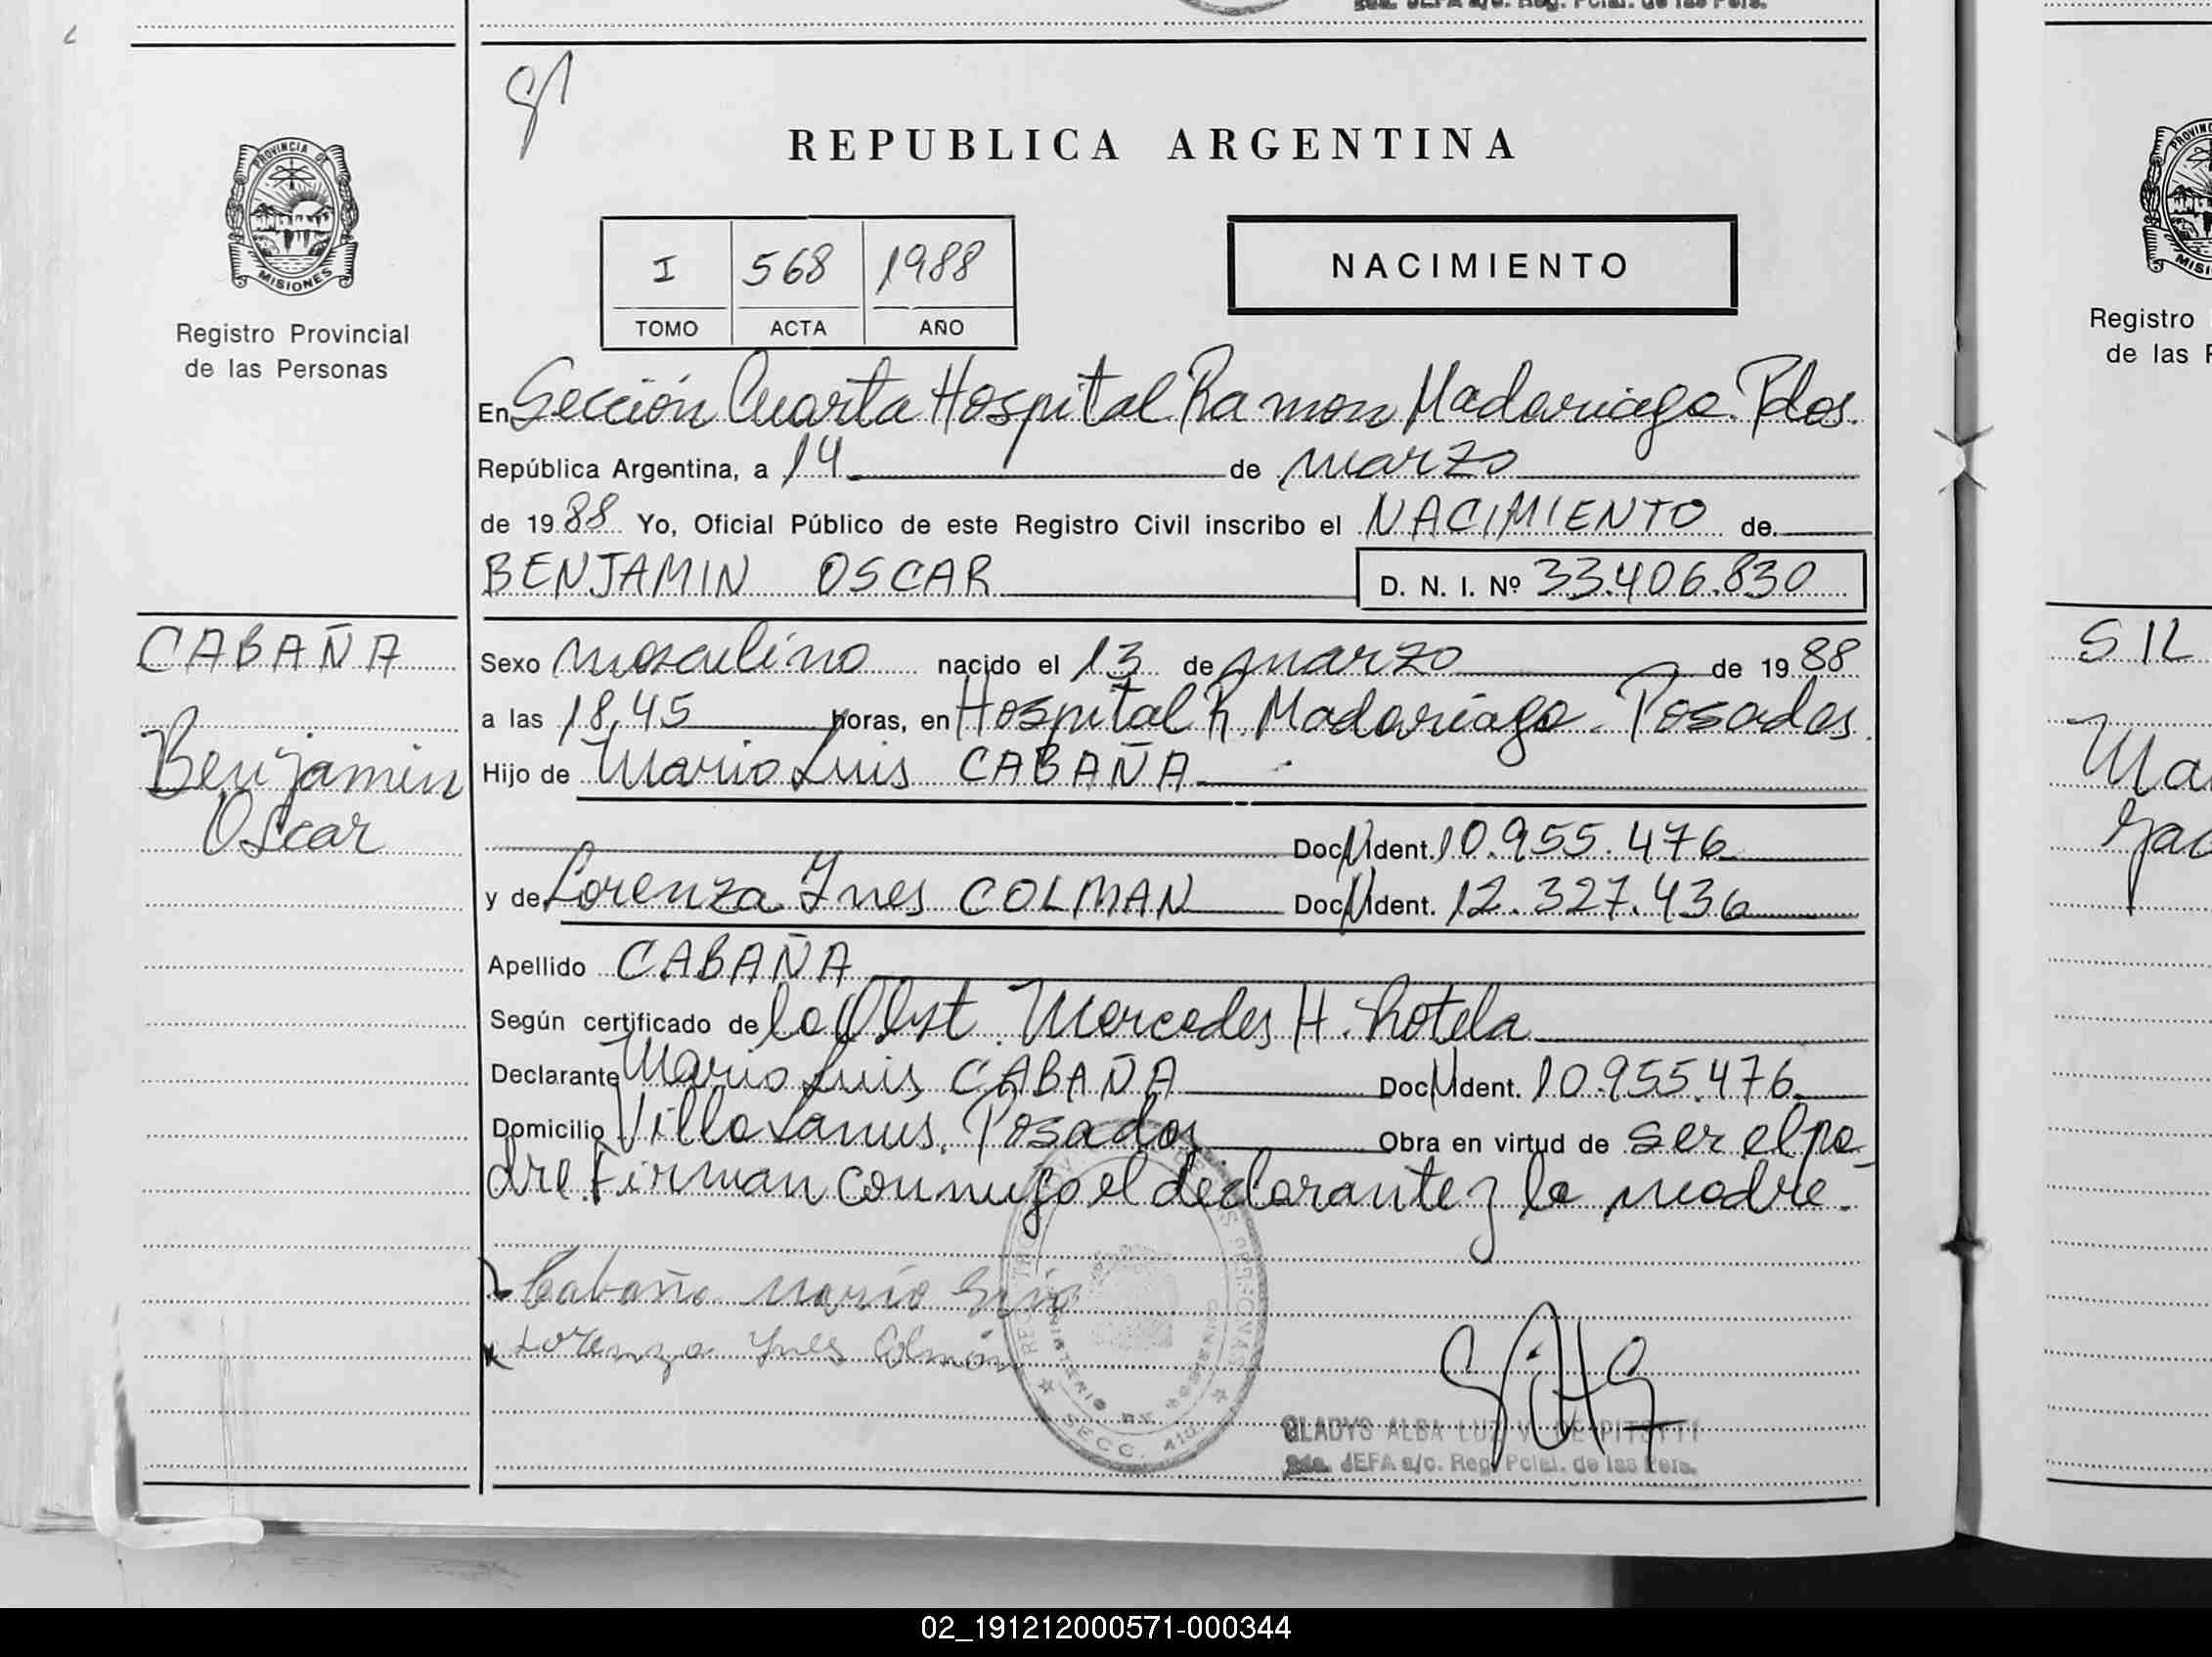 Sda. JEFA a/c. Reg. Pcial. de las Pers.
PROVINCIA DE
MISIONES
Registro Provincial
de las Personas
CABAÑA
Benjamin
Oscar
REPUBLICA ARGENTINA
I 568 1988
TOMO ACTA AÑO
NACIMIENTO
En Sección Cuarta Hospital Ramon Madariaga. Pdas.
República Argentina, a 14 de marzo
de 1988 Yo, Oficial Público de este Registro Civil inscribo el NACIMIENTO de
BENJAMIN OSCAR D. N. I. Nº 33.406.830
Sexo masculino nacido el 13 de marzo de 1988
a las 18,45 horas, en Hospital R. Madariaga. Posadas.
Hijo de Mario Luis CABAÑA
Doc. Ident. 10.955.476
y de Lorenza Ines COLMAN Doc. Ident. 12.327.436
Apellido CABAÑA
Según certificado de la Obst. Mercedes H.
Declarante Mario Luis CABAÑA Doc. Ident. 10.955.476
Domicilio Villa Lanus. Posadas Obra en virtud de ser el pa-
dre. Firman conmigo el declarante y la madre.
Cabaña Mario Luis
Lorenza Ines Colmán
SECC. 4ta.
GLADYS ALBA LUZ V. DE PITSTTI
Sda. JEFA a/c. Reg. Pcial. de las Pers.
Registro
de las
SIL
02_191212000571-000344